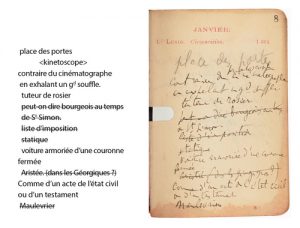 place des portes
<kinetoscope>
contraire du cinématographe
en exhalant un gd souffle.
tuteur de rosier
peut-on dire bourgeois au temps
de St Simon.
liste d'imposition
statique
voiture armoriée d'une couronne
fermée
Aristée. (dans les Géorgiques ?)
Comme d'un acte de l'état civil
ou d'un testament
Maulevrier
8
JANVIER.
Circoncision.
place des portes
kinetoscope
contraire du cinématographe
en exhalant un gd souffle
tuteur de rosier
peut-on dire bourgeois au temps
de St Simon
liste d'imposition
statique
voiture armoriée d'une couronne
fermée
Aristée (dans les Géorgiques ?)
Comme d'un acte de l'état civil
ou d'un testament
Maulevrier